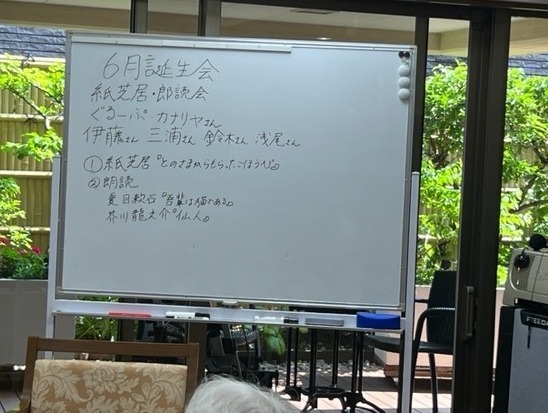 6月誕生会
紙芝居・郎読会
ぐるーぷ カナリヤさん
伊藤さん 三浦さん 鈴木さん 浅尾さん
①紙芝居『とのさまからもらったごほうび』
②朗読
夏目漱石『吾輩は猫である』
芥川龍之介『仙人』